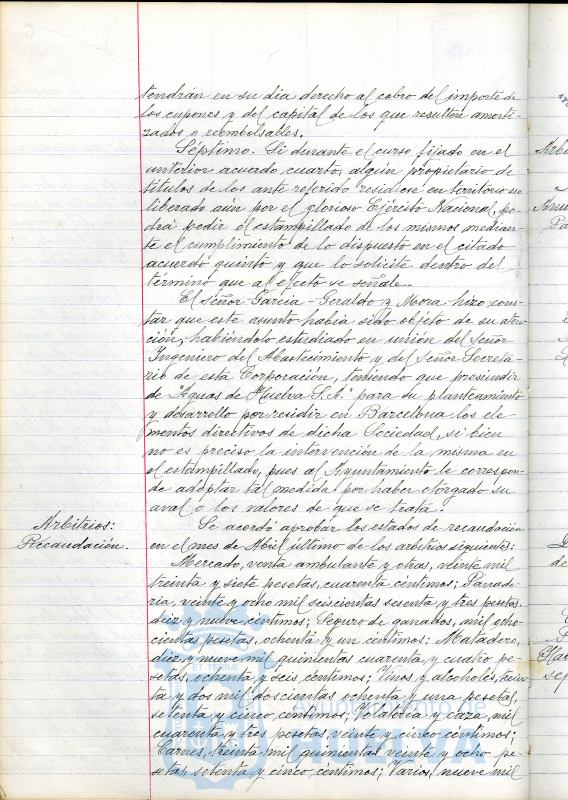 tendrán en su dia derecho al cobro del importe de
los cupones y del capital de los que resulten amorti-
zados o reembolsables.
Séptimo. Si durante el curso fijado en el
anterior acuerdo cuarto, algún propietario de
títulos de los ante referido residiese en territorio no
liberado aún por el glorioso Ejército Nacional, po-
drá pedir el estampillado de los mismos median-
te el cumplimiento de lo dispuesto en el citado
acuerdo quinto y que lo solicite dentro del
término que al efecto se señale.
El Señor García-Geraldo y Mora hizo cons-
tar que este asunto había sido objeto de su aten-
ción, habiéndolo estudiado en unión del Señor
Ingeniero del Abastecimiento y del Señor Secreta-
rio de esta Corporación, teniendo que presindir
de "Aguas de Huelva S.A." para su planteamiento
y desarrollo por residir en Barcelona los ele-
mentos directivos de dicha Sociedad, si bien
no es preciso la intervención de la misma en
el estampillado, pues al Ayuntamiento le correspon-
de adoptar tal medida por haber otorgado su
aval a los valores de que se trata.
Arbitrios:
Recaudación.
Se acordó aprobar los estados de recaudación
en el mes de Abril último de los arbitrios siguientes:
Mercado, venta ambulante y otras, veinte mil
treinta y siete pesetas, cuarenta céntimos; Panade-
ria, veinte y ocho mil seiscientas sesenta y tres pesetas,
diez y nueve céntimos; Seguro de ganados, mil ocho-
cientas pesetas, ochenta y un céntimos; Matadero,
diez y nueve mil quinientas cuarenta y cuatro pe-
setas, ochenta y seis céntimos; Vinos y alcoholes, trein-
ta y dos mil doscientas ochenta y una pesetas,
setenta y cinco céntimos; Volatería y caza, mil
cuarenta y tres pesetas, veinte y cinco céntimos;
Carnes, treinta mil quinientas veinte y ocho pe-
setas, setenta y cinco céntimos; Varios, nueve mil
Ayuntamiento de